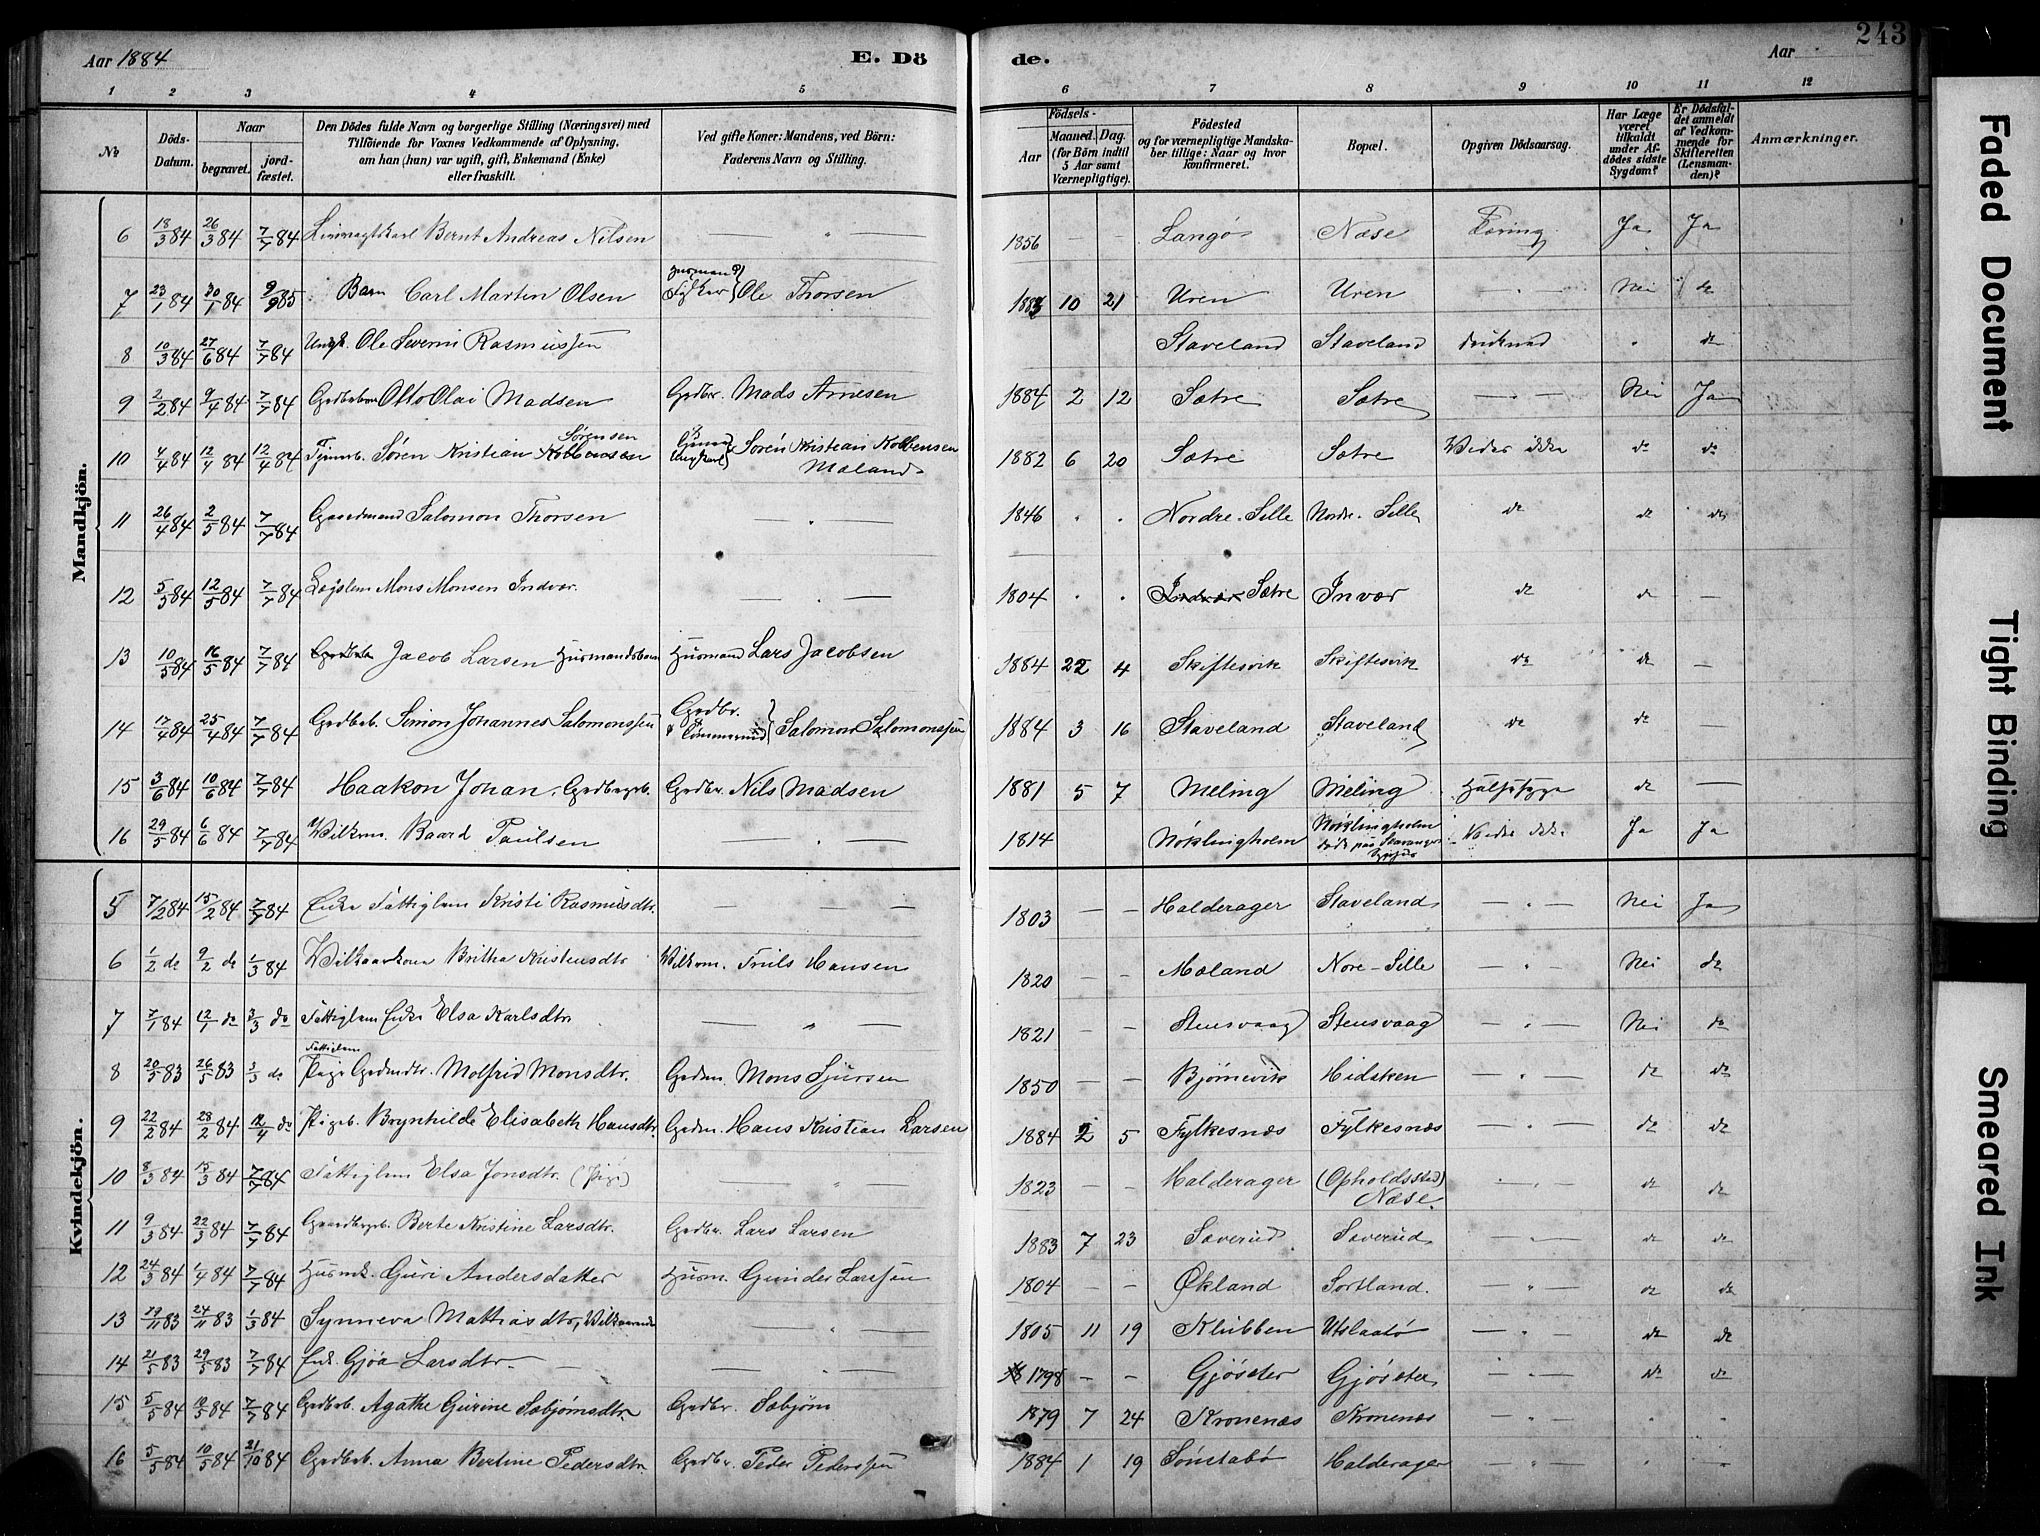 Aar 1884 E. Döde. Aar 243
1 2 3 4 5 6 7 8 9 10 11 12
№ Döds-Datum. Naar begravet. jordfæstet. Den Dödes fulde Navn og borgerlige Stilling (Næringsvei) med Tilföiende for Voxnes Vedkommende af Oplysning, om han (hun) var ugift, gift, Enkemand (Enke) eller fraskilt. Ved gifte Koner: Mandens, ved Börn: Faderens Navn og Stilling. Födsels- Aar Maaned. Dag. (for Börn indtil 5 Aar samt Værnepligtige). Födested og for værnepligtige Mandskaber tillige: Naar og hvor konfirmeret. Bopæl. Opgiven Dödsaarsag. Har Læge været tilkaldt under Afdödes sidste Sygdom? Er Dödsfaldet anmeldt af Vedkommende for Skifteretten (Lensmanden)? Anmærkninger.
Mandkjön.
6 18/3 84 26/3 84 7/7 84 Bernt Andreas Nilsen — " — 1856 — — Langø Næse Tæring Ja Ja
7 23/1 84 30/1 84 9/9 85 Barn Carl Martin Olsen Husmand & Fisker Ole Thorsen 1883 10 21 Uren Uren — " — Nei do
8 10/3 84 27/6 84 7/7 84 Ungk. Ole Severin Rasmussen Staveland Staveland druknet " do
9 2/2 84 9/4 84 7/7 84 Grdbrbarn Otto Olai Madsen Grdbr. Mads Arnesen 1884 2 12 Sætre Sætre — " — Nei Ja
10 4/4 84 12/4 84 12/4 84 Søren Kristian Kolbensen Sørensen Søren Kristian Kolbensen Mæland 1882 6 20 Sætre Sætre Vides ikke do do
11 26/4 84 2/5 84 7/7 84 Gaardmand Salomon Thorsen — " — 1846 " " Nordre-Sille Nordre-Sille do do do
12 5/5 84 12/5 84 7/7 84 Lægslem Mons Monsen Indvær. — " — 1804 " " Indvær Sætre Invær do do —
13 10/5 84 16/5 84 7/7 84 Grdbrb. Jacob Larsen Husmandsbarn Husmand Lars Jacobsen 1884 22 4 Skiftesvik Skiftesvik do do —
14 17/4 84 25/4 84 7/7 84 Grdbrb. Simon Johannes Salomonssen Grdbr. & Salomon Salomonssen 1884 3 16 Staveland Staveland do do —
15 3/6 84 10/6 84 7/7 84 Haakon Johan. Grdbrgrb. Grdbr. Nils Madsen 1881 5 7 Meling Meling Halssyge do —
16 29/5 84 6/6 84 7/7 84 Vilkm. Baard Paulsen — " — 1814 Nøklingholm Nøklingholm døde paa Stavanger Sygehus Vides ikke Ja Ja
Kvindekjön.
5 7/2 84 15/2 84 7/7 84 Enke Fattiglem Kristi Rasmusdtr. — — — 1803 — — Halderager Staveland — " — Nei Ja
6 1/2 do 9/2 do 1/3 84 Vilkaarskone Britha Kristensdtr. Vilkm. Truls Hansen 1820 — — Mæland Nore-Sille — " — Nei do
7 7/1 84 12/1 do 3/3 do Fattiglem Enke Elsa Karlsdtr. — " — 1821 — — Stensvaag Stensvaag — " — Nei do
8 20/5 83 26/5 83 3/3 do Fattiglem Pige Grdmdtr. Molfrid Monsdtr. Grdm. Mons Sjursen 1850 — — Bjørnevik Hidsken — " — do do
9 22/2 84 28/2 84 12/4 do Pigeb. Brynhilde Elisabeth Hansdtr. Grdm. Hans Kristian Larsen 1884 2 5 Fylkesnæs Fylkesnæs — " — do do
10 8/3 84 15/3 84 7/7 84 Fattiglem Elsa Jonsdtr. (Pige) — " — 1823 — — Halderager (Opholdssted) Næse. — " — do do
11 9/3 84 22/3 84 7/7 84 Gaardbrgrb. Berte Kristine Larsdtr. Grdbr. Lars Larsen 1883 7 23 Sæverud Sæverud — " — do do
12 24/3 84 1/4 84 7/7 84 Husmk. Guri Andersdatter Husm. Gunder Larssen 1804 — — Økland Sortland. — " — do do
13 19/11 83 24/11 83 1/3 84 Synneva Mattiasdtr, Vilkaarenke — " — 1805 11 19 Klubben Utslaatø — " — do do
14 21/5 83 29/5 83 7/7 84 Enk. Gjøa Larsdtr. — " — 1798 — — Gjøseter Gjøseter — " — do do
15 5/5 84 10/5 84 7/7 84 Grdbrb. Agathe Gurine Sæbjørnsdtr Grdbr. Sæbjørn 1879 7 24 Kronenæs Kronenæs — " — " "
16 5/5 84 10/5 84 21/10 84 Grdbrb. Anna Bertine Pedersdtr Grdbr. Peder Pederssen 1884 1 19 Sønstabø Halderager — " — " —
Faded Document
Tight Binding
Smeared Ink